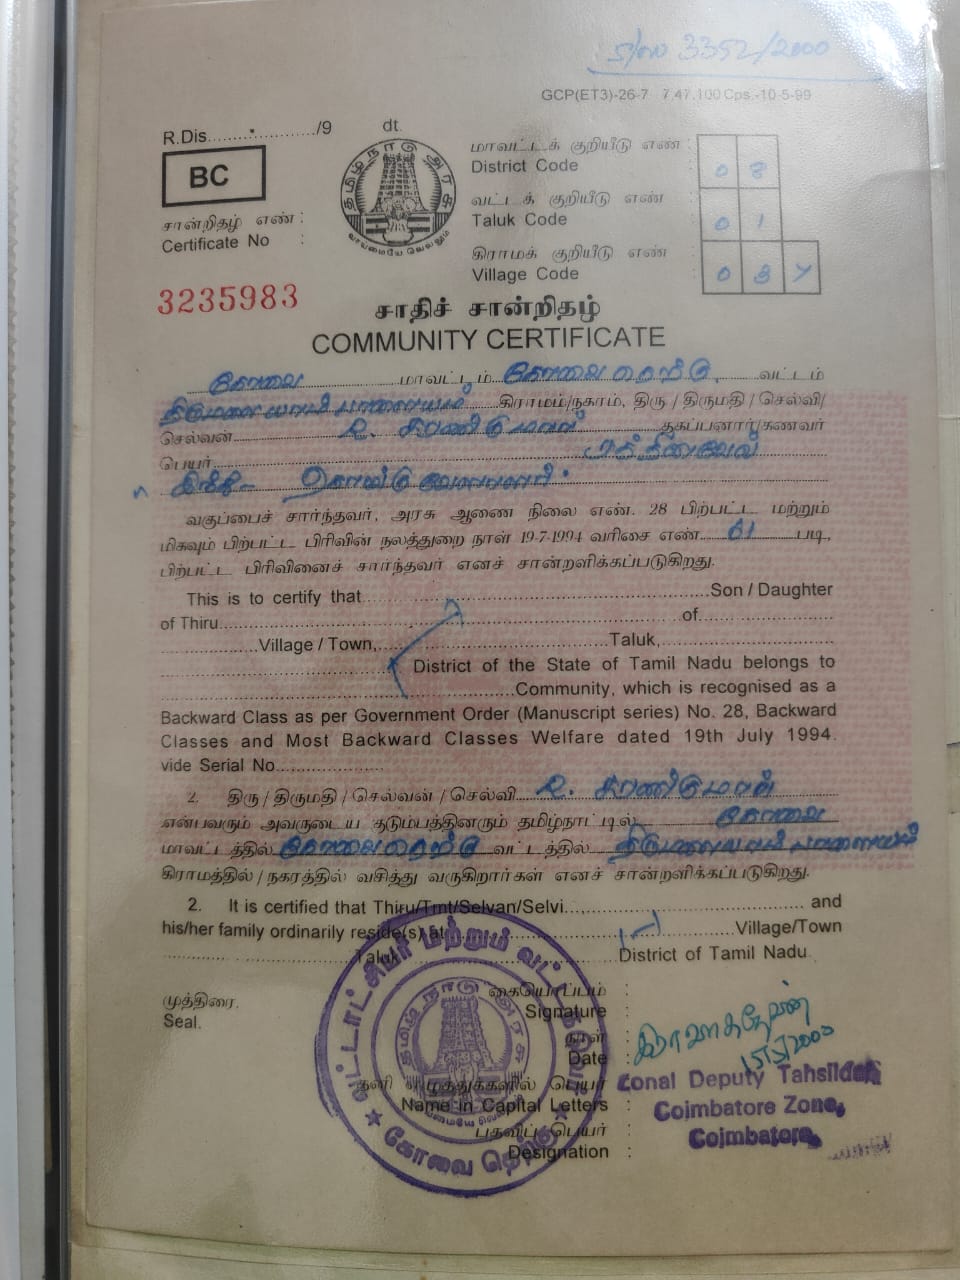 3352/2000
GCP(ET3)-26-7 7,47,100 Cps.-10-5-99
R.Dis....................../9 dt.
BC
தமிழ்நாடு அரசு
வாய்மையே வெல்லும்
மாவட்டக் குறியீடு எண் :
District Code 0 8
வட்டக் குறியீடு எண் :
Taluk Code 0 1
கிராமக் குறியீடு எண் :
Village Code 0 3
சான்றிதழ் எண் :
Certificate No :
3235983
சாதிச் சான்றிதழ்
COMMUNITY CERTIFICATE
கோவை மாவட்டம் கோவை தெற்கு வட்டம்
திருமலையாம்பாளையம் கிராமம்/நகரம், திரு / திருமதி / செல்வி/
செல்வன் R. சரண்குமார் தகப்பனார்/கணவர்
பெயர்
இந்து-
வகுப்பைச் சார்ந்தவர், அரசு ஆணை நிலை எண். 28 பிற்பட்ட மற்றும்
மிகவும் பிற்பட்ட பிரிவின் நலத்துறை நாள் 19-7-1994 வரிசை எண் 61 படி,
பிற்பட்ட பிரிவினைச் சார்ந்தவர் எனச் சான்றளிக்கப்படுகிறது.
This is to certify that......................Son / Daughter
of Thiru......................of......................
......................Village / Town,......................Taluk,......................
......................District of the State of Tamil Nadu belongs to
......................Community, which is recognised as a
Backward Class as per Government Order (Manuscript series) No. 28, Backward
Classes and Most Backward Classes Welfare dated 19th July 1994.
vide Serial No......................
2. திரு / திருமதி / செல்வன் / செல்வி R. சரண்குமார்
என்பவரும் அவருடைய குடும்பத்தினரும் தமிழ்நாட்டில் கோவை
மாவட்டத்தில் கோவை தெற்கு வட்டத்தில் திருமலையாம்பாளையம்
கிராமத்தில் / நகரத்தில் வசித்து வருகிறார்கள் எனச் சான்றளிக்கப்படுகிறது.
2. It is certified that Thiru/Tmt/Selvan/Selvi......................and
his/her family ordinarily reside(s) at......................Village/Town
......................Taluk......................District of Tamil Nadu.
முத்திரை.
Seal.
கையொப்பம் :
Signature :
நாள் :
Date : 15/5/2000
தனி எழுத்துக்களில் பெயர் :
Name in Capital Letters :
பதவிப் பெயர் :
Designation :
Zonal Deputy Tahsildar
Coimbatore Zone,
Coimbatore.
வட்டாட்சியர் மற்றும்
கோவை தெற்கு
தமிழ்நாடு அரசு